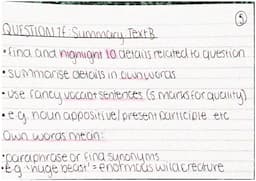 5
QUESTION 1f: Summary Text B
• find and highlight 10 details related to question
• summarise details in own words
• use fancy vocab + sentences (5 marks for quality)
• e.g. noun appositive / present participle etc
Own words mean:
• paraphrase or find synonyms
• e.g. 'huge beast' = enormous wild creature